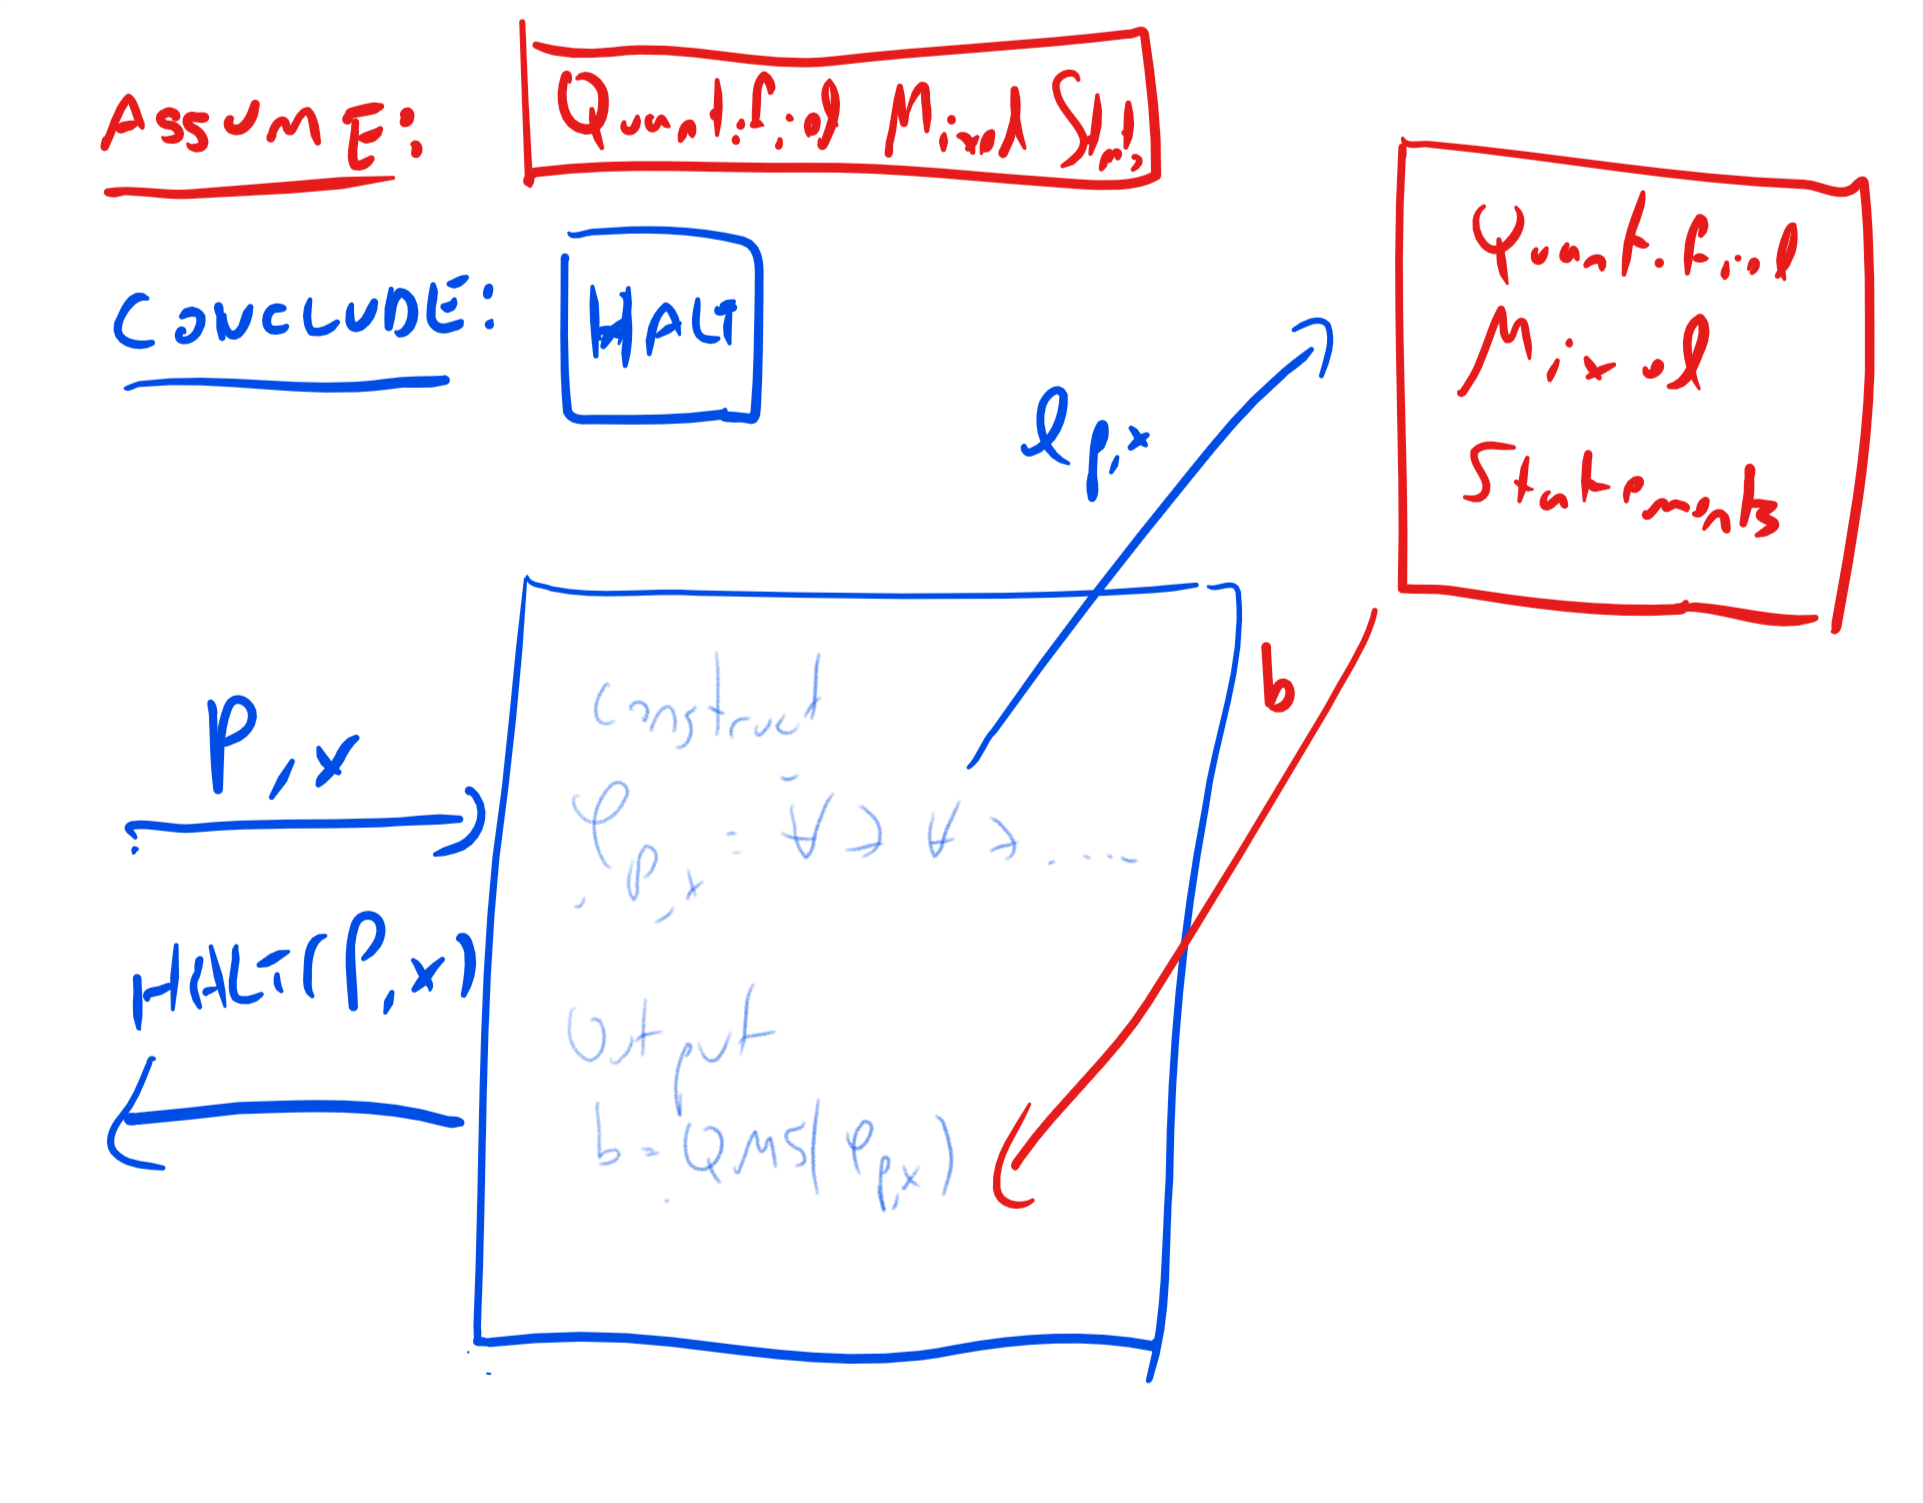 ASSUME: Quantified Mixed Stms
CONCLUDE: HALT
Quantified
Mixed
Statements
φ_{P,x}
b
P, x
Construct
φ_{P,x} = ∀ ∃ ∀ ∃ ....
HALT(P,x)
Output
b = QMS(φ_{P,x})